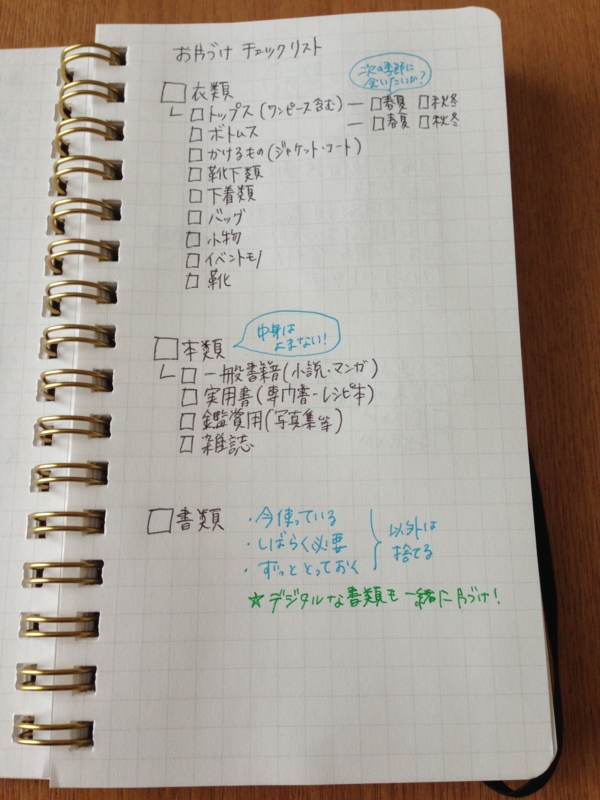 お片づけ チェックリスト
次の季節に
会いたいか?
□ 衣類
□ トップス (ワンピース含む) ー □春夏 □秋冬
□ ボトムス ー □春夏 □秋冬
□ かけるもの(ジャケット・コート)
□ 靴下類
□ 下着類
□ バッグ
□ 小物
□ イベントモノ
□ 靴
□ 本類
中身は
よまない!
□ 一般書籍(小説・マンガ)
□ 実用書(専門書・レシピ本)
□ 鑑賞用(写真集等)
□ 雑誌
□ 書類
・今使っている
・しばらく必要
・ずっととっておく
以外は
捨てる
☆デジタルな書類も一緒に片づけ!